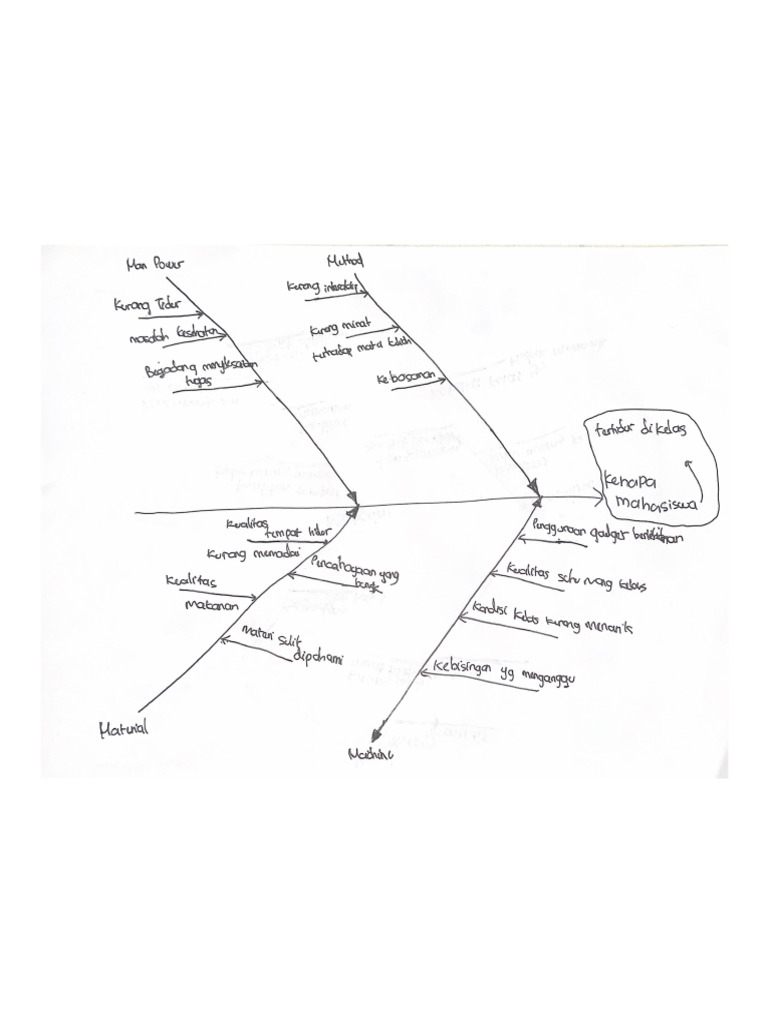 Man Power
Kurang Tidur
masalah kesehatan
Begadang menyelesaikan
tugas
Method
Kurang interaksi
Kurang minat
terhadap mata kuliah
Kebosanan
tertidur di kelas
Kenapa
mahasiswa
Kualitas
tempat tidur
Kurang memadai
Pencahayaan yang
buruk
Kualitas
makanan
Materi sulit
dipahami
Material
Penggunaan gadget berlebihan
Kualitas suhu ruang kelas
Kondisi Kelas kurang menarik
Kebisingan yg mengganggu
Machine